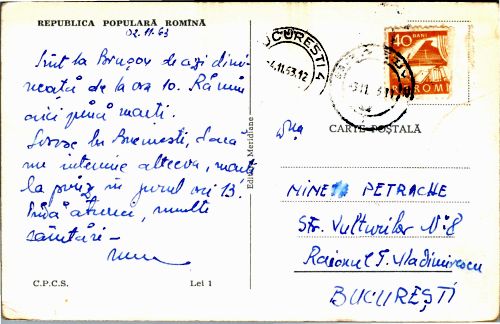 REPUBLICA POPULARĂ ROMÎNĂ
02.11.63
Sînt la Brașov de azi dimi-
neață de la ora 10. Rămîn
aici pînă marți.
Sosesc în București, dacă
nu intervine altceva, marți
la prînz în jurul orei 13.
Pînă atunci, multe
sănătări –
C.P.C.S.
Lei 1
Editura Meridiane
BUCUREȘTI 4
-4.11.63.12
40 BANI
CARTE POȘTALĂ
D-na
MINETA PETRACHE
Str. Vulturilor Nr 8
Raionul T. Vladimirescu
BUCUREȘTI